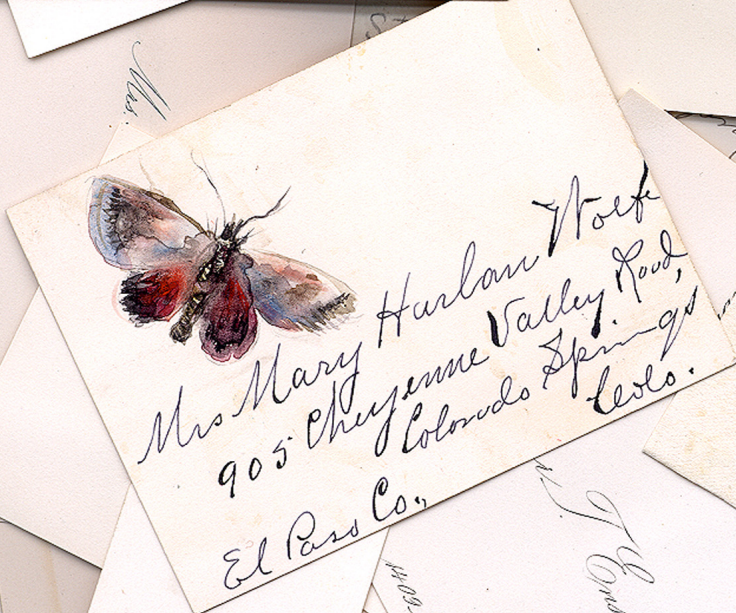 Mrs.
Mrs Mary Harlan Wolfe
905 Cheyenne Valley Road,
Colorado Springs
Colo.
El Paso Co.,